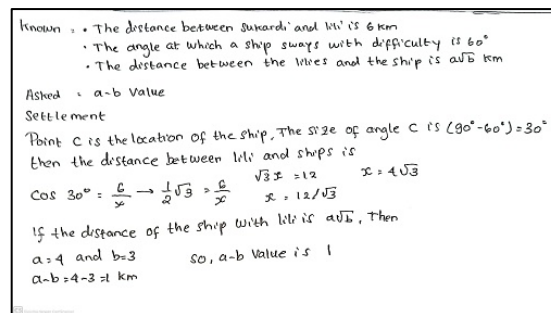 Known : • The distance between Sukardi and lili is 6 km
• The angle at which a ship sways with difficulty is 60°
• The distance between the lilies and the ship is a√b km
Asked : a-b Value
Settlement
Point C is the location of the ship, The size of angle C is (90°-60°)=30°
then the distance between lili and ships is
√3 x =12 x = 4√3
Cos 30° = 6/x → 1/2 √3 = 6/x x = 12/√3
if the distance of the ship with lili is a√b, Then
a=4 and b=3 so, a-b Value is 1
a-b=4-3=1 km